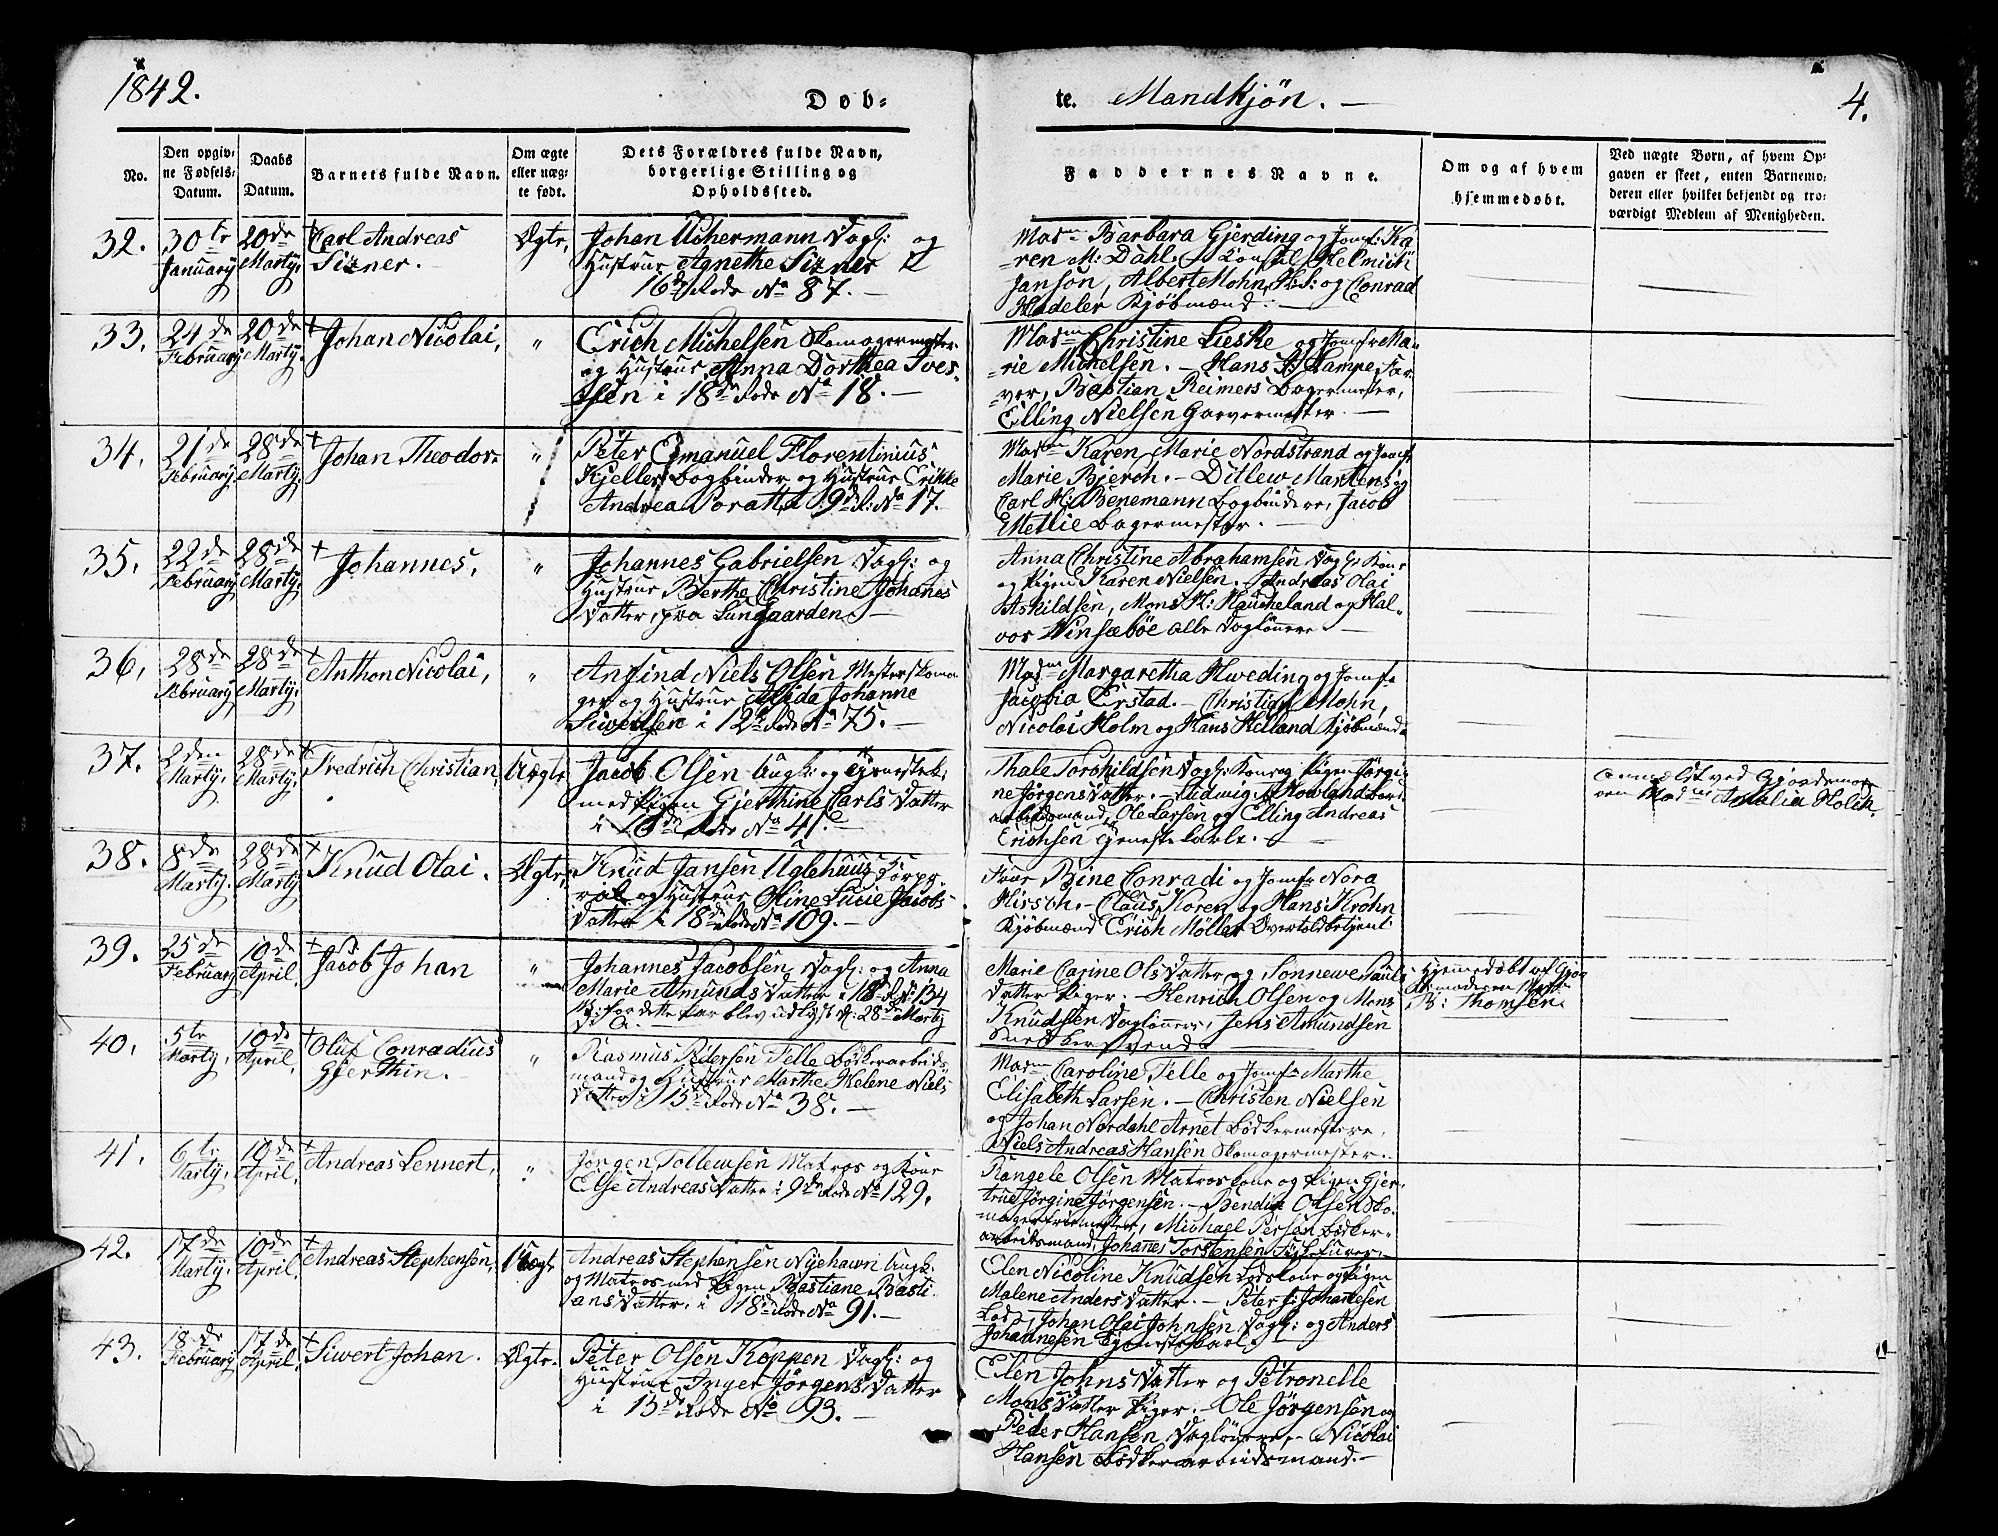 1842.
Døb-
te. Mandkjøn. —
4.
No.
Den opgiv-
ne Fødsels-
Datum.
Daabs
Datum.
Barnets fulde Navn.
Om ægte
eller uæg-
te født.
Dets Forældres fulde Navn,
borgerlige Stilling og
Opholdssted.
Faddernes Navne.
Om og af hvem
hjemmedøbt.
Ved uægte Børn, af hvem Op-
gaven er skeet, enten Barnemo-
deren eller hvilket bekjendt og tro-
værdigt Medlem af Menigheden.
32. 30te January 20de Martij. Carl Andreas
Sizner. —
Ægte,
Johan Uchermann Dagl: og
Hustrue Agnethe Sizner
16de Rode No 87. —
Madm Barbara Gjerding og Jomf: Ka
ren M: Dahl. — Helmich
Janson, Albert Mohn, og Conrad
Hadeler Kjøbmænd. —
33. 24de February 20de Martij. Johan Nicolai, "
Erich Michelsen Skomagermester
og Hustrue Anna Dorthea Ives-
sen i 18de Rode No 18. —
Madm Christine Lieske og Jomfr Ma-
rie Michelsen. — Hans H: Kampe, Far-
ver, Bastian Reimers Bagermester,
Elling Nielsen Garvermester. —
34. 21de February 28de Martij. Johan Theodor "
Peter Emanuel Florentinius
Kjeller Bogbinder og Hustrue Erikke
Andrea Porath, i 9de R: No 17.
Madm Karen Marie Nordstrand og Jomfr
Marie Bjerch. — Ditlew Martens og
Carl H: Benemann Bogbindere, Jacob
Mellie Bagermester. —
35. 22de February 28de Martij. Johannes, "
Johannes Gabrielsen Dagl: og
Hustrue Berthe Christine Johannes
Datter, fra Sungaarden —
Anna Christine Abrahamsen Dagl: Kone
og Pigen Karen Nielsen. — Andreas Olai
Askildsen, Mons H: Haucheland og Hal-
vor Vinsæbøe alle Daglønnere —
36. 28de February 28de Martij. Anthon Nicolai, "
Anfind Niels Olsen Mesterskoma-
ger og Hustrue Alida Johanne
Siwertsen i 12te Rode No 75. —
Madm Margaretha Hweding og Jomfr
Jacobia Erstad. — Christian Mohn,
Nicolai Holm og Hans Helland Kjøbmænd
37. 2den Martij. 28de Martij. Fredrich Christian, Uægte
Jacob Olsen Ungk: og Tjenestek:
med Pigen Gjerthine Carls Datter
i 16de Rode No 41. —
Thale Torchildsen Dagl: Kone og Pigen Jørgi-
ne Jørgens Datter. — Ludwig Howland
arbeidsmand, Ole Larsen og Elling Andreas
Erichsen Tjenestekarle. —
anmeldt ved Gjordemo-
ren Madm Amalia Holck.
38. 8de Martij. 28de Martij. Knud Olai. Ægte,
Knud Jansen Uglehuus Korpo-
ral og Hustrue Oline Lucie Jacobs-
Datter i 18de Rode No 109. —
Frue Bine Conradi og Jomfr Nora
Hirsch. — Claus Koren og Hans Krohn
Kjøbmænd Erich Møller Overtoldbetjent
39. 25de February 10de April. Jacob Johan "
Johannes Jacobsen, Dagl: og Anna
Marie Amunds Datter i 18de R No 134
for dette Par blev udlyst d: 28de Martij
Marie Carine Ols Datter og Sønnewe Pauls
Datter Piger. — Henrich Olsen og Mons
Knudsen Dagløners, Jens Amundsen
Snedkersvend.
Hjemmedøbt af Gjor
demoderen
B: Thomsen
40. 5te Martij. 10de April. Oluf Conradius
Gjerthin. — "
Rasmus Pedersen Telle Bødkerarbeids-
mand og Hustrue Marthe Helene Niels
Datter i 15de Rode No 38. —
Madm Caroline Telle og Jomfr Marthe
Elisabeth Larsen. — Christen Nielsen
og Johan Nordahl Arnet Bødkermestere,
Niels Andreas Hansen Skomagermester. —
41. 6te Martij. 10de April. Andreas Lennert, "
Jørgen Tollewsen Matros og Kone
Else Andreas Datter i 9de Rode No 129.
Rangele Olsen Matroskone og Pigen Gjer-
true Jørgine Jørgensen. — Bendix Olsen Sko-
magerfriemester, Michael Persen Bødker-
arbeidsmand, Johannes Torstensen
42. 17de Martij. 10de April. Andreas Stephensen, Uægte
Andreas Stephensen Nyehawn Ungk:
og Matros med Pigen Bastiane Basti-
ans Datter, i 18de Rode No 91. —
Elen Nicoline Knudsen Lodskone og Pigen
Malene Anders Datter. — Peter J: Johannesen
Lods, Johan Olai Johnsen Dagl: og Anders
Johannesen Tjenestekarl.
43. 18de February 17de April. Siwert Johan. Ægte.
Peter Olsen Koppen Dagl: og
Hustrue Inger Jørgens Datter
i 15de Rode No 93. —
Elen Johns Datter og Petronelle
Mons Datter Piger. — Ole Jørgensen og
Peder Hansen, Dagløнere, — Nicolai
Hansen Bødkerarbeidsmand. —